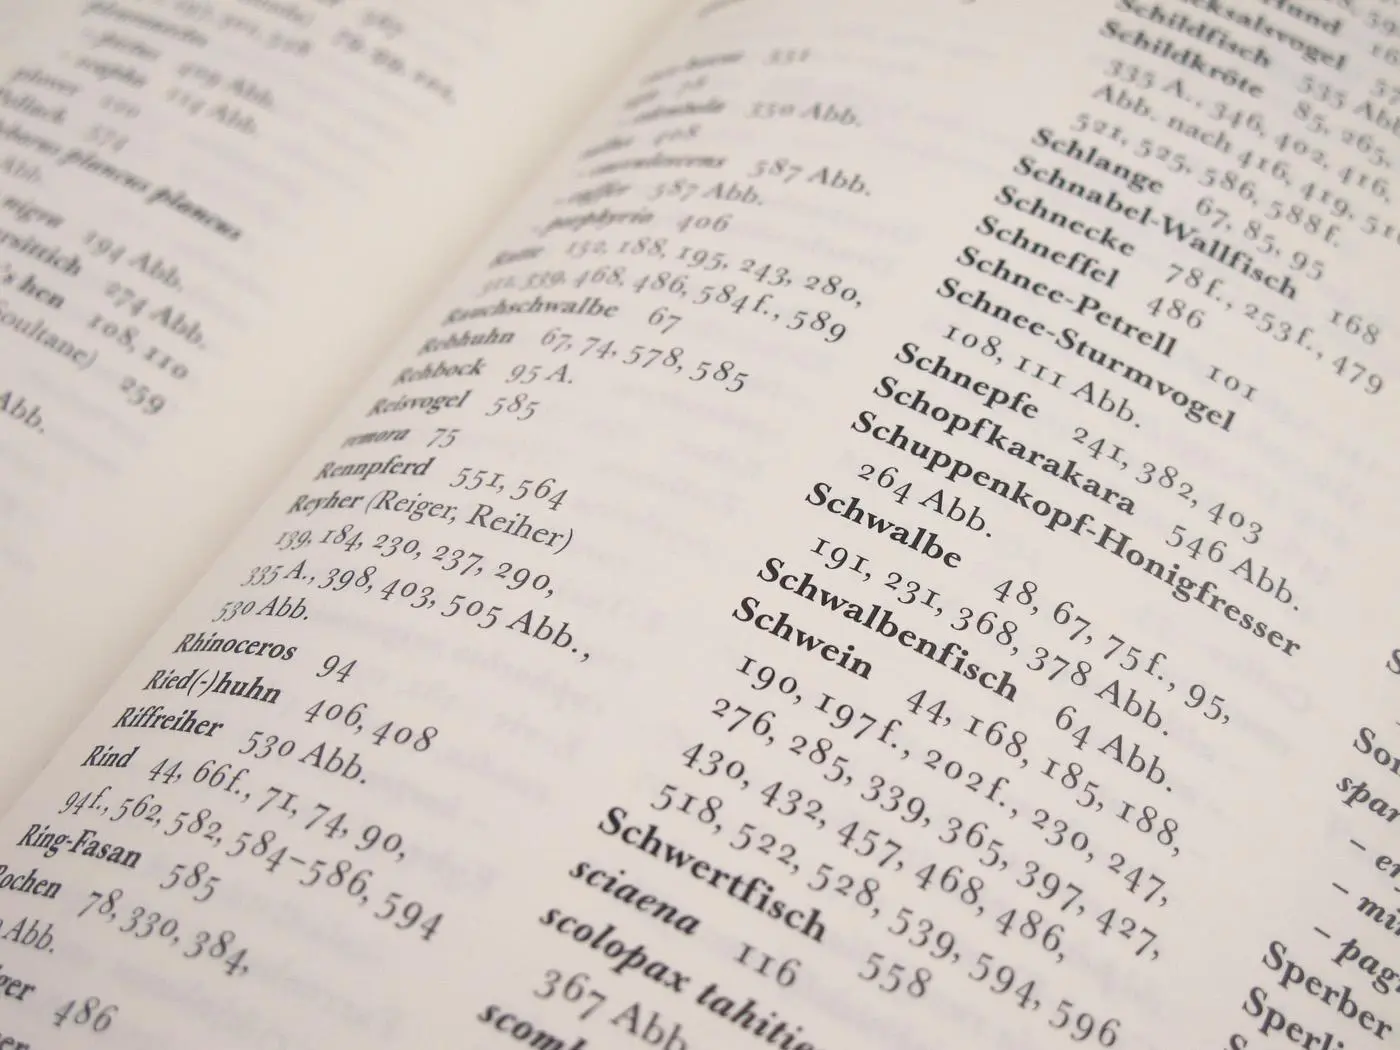 404 Abb.
214 Abb.
plover
574
plancus plancus
Abb.
nigra 194 Abb.
274 Abb.
's hen 108, 110
Soultane) 259
Abb.
331
350 Abb.
587 Abb.
587 Abb.
porphyrio 406
Ratte 152, 188, 195, 243, 280,
339, 468, 486, 584f., 589
Rauchschwalbe 67
Rebhuhn 67, 74, 578, 585
Rehbock 95 A.
Reisvogel 585
remora 75
Rennpferd 551, 564
Reyher (Reiger, Reiher)
139, 184, 230, 237, 290,
335 A., 398, 403, 505 Abb.,
530 Abb.
Rhinoceros 94
Ried(-)huhn 406, 408
Riffreiher 530 Abb.
Rind 44, 66f., 71, 74, 90,
94f., 562, 582, 584–586, 594
Ring-Fasan 585
Rochen 78, 330, 384,
Abb.
486
Schildfisch 535 Abb.
Schildkröte 85, 265,
335 A., 346, 402, 416,
Abb. nach 416, 419, 
521, 525, 586, 588f.
Schlange 67, 85, 95
Schnabel-Wallfisch 168
Schnecke 78f., 253f., 479
Schneffel 486
Schnee-Petrell 101
Schnee-Sturmvogel
108, 111 Abb.
Schnepfe 241, 382, 403
Schopfkarakara 546 Abb.
Schuppenkopf-Honigfresser
264 Abb.
Schwalbe 48, 67, 75f., 95,
191, 231, 368, 378 Abb.
Schwalbenfisch 64 Abb.
Schwein 44, 168, 185, 188,
190, 197f., 202f., 230, 247,
276, 285, 339, 365, 397, 427,
430, 432, 457, 468, 486,
518, 522, 528, 539, 594, 596
Schwertfisch 558
sciaena 116
scolopax tahiti
367 Abb.
scomb
Sperber
Sperli